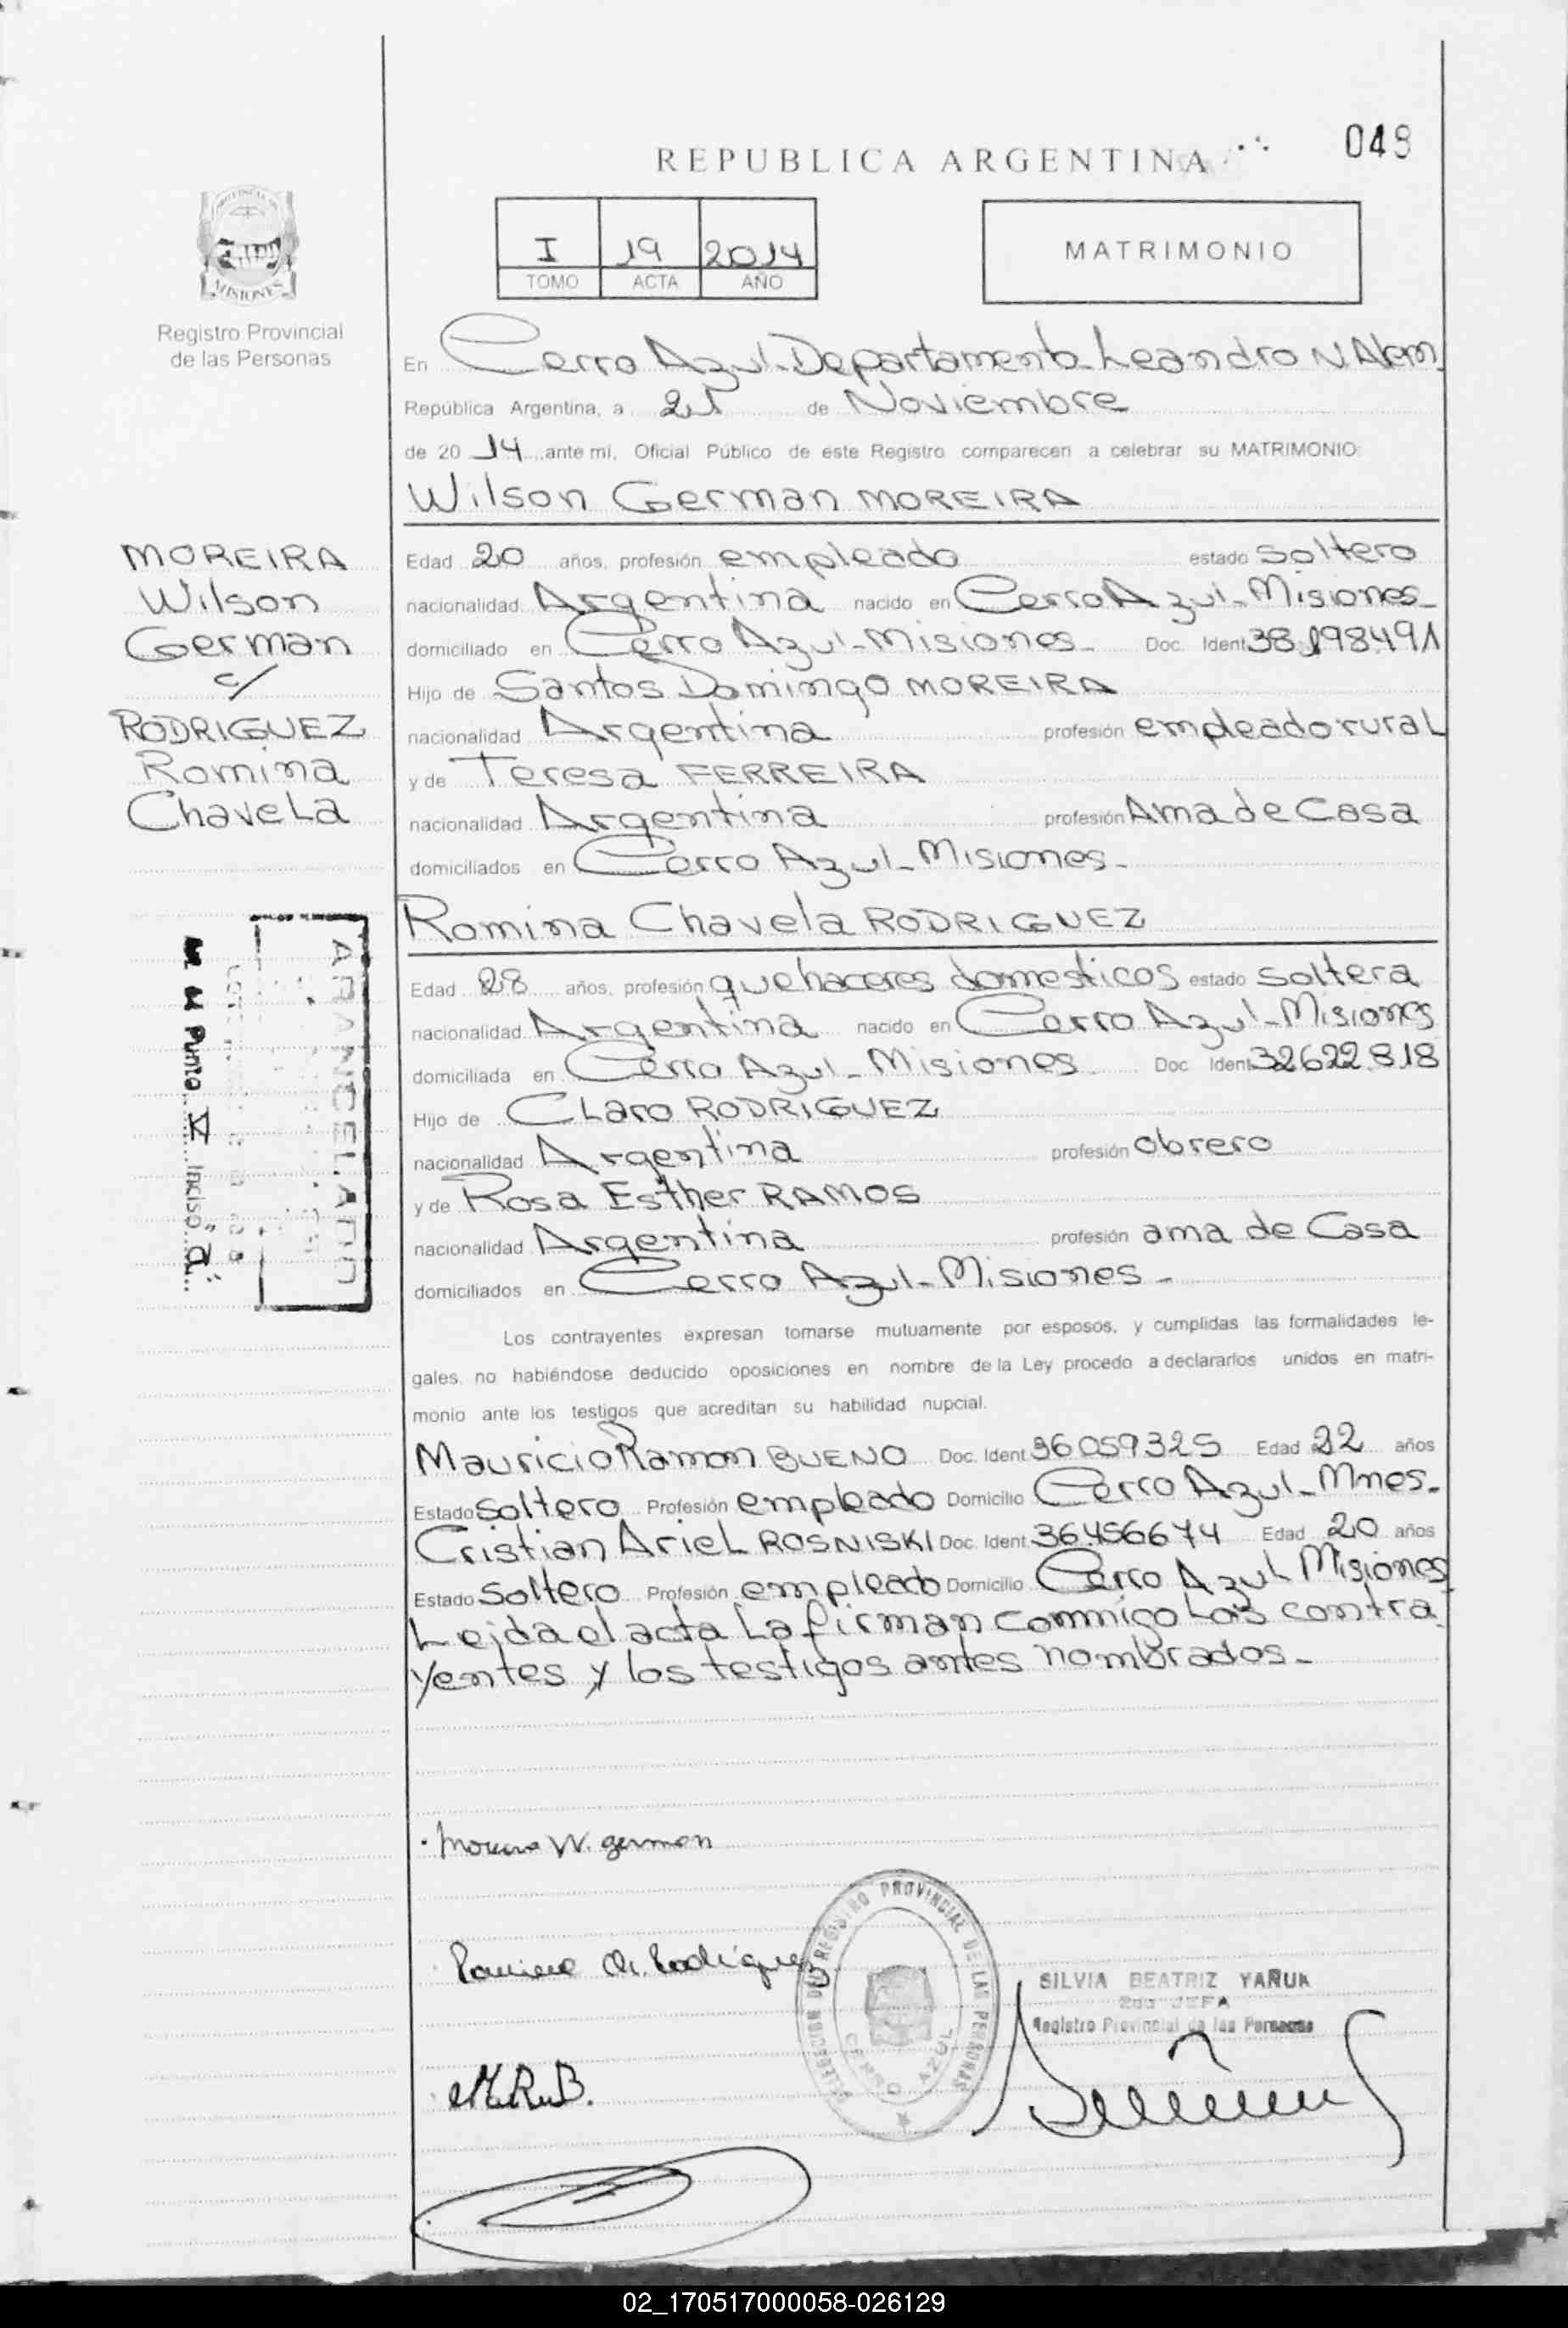 REPUBLICA ARGENTINA
048
I 19 2014
TOMO ACTA AÑO
MATRIMONIO
MISIONES
Registro Provincial
de las Personas
En Cerro Azul-Departamento Leandro N Alem
República Argentina, a 21 de Noviembre
de 20 14 ante mi, Oficial Público de este Registro comparecen a celebrar su MATRIMONIO:
Wilson German MOREIRA
MOREIRA
Wilson
German
c/
RODRIGUEZ
Romina
Chavela
Edad 20 años, profesión empleado estado Soltero
nacionalidad Argentina nacido en Cerro Azul-Misiones-
domiciliado en Cerro Azul-Misiones- Doc. Ident. 38.198.491
Hijo de Santos Domingo MOREIRA
nacionalidad Argentina profesión empleado rural
y de Teresa FERREIRA
nacionalidad Argentina profesión Ama de Casa
domiciliados en Cerro Azul-Misiones-
Romina Chavela RODRIGUEZ
ARANCELADO
Punto X Inciso "a"
Edad 28 años, profesión quehaceres domesticos estado soltera
nacionalidad Argentina nacido en Cerro Azul-Misiones
domiciliada en Cerro Azul-Misiones Doc. Ident. 32622.818
Hijo de Claro RODRIGUEZ
nacionalidad Argentina profesión Obrero
y de Rosa Esther RAMOS
nacionalidad Argentina profesión ama de Casa
domiciliados en Cerro Azul-Misiones-
Los contrayentes expresan tomarse mutuamente por esposos, y cumplidas las formalidades le-
gales, no habiéndose deducido oposiciones en nombre de la Ley procedo a declararlos unidos en matri-
monio ante los testigos que acreditan su habilidad nupcial.
Mauricio Ramon BUENO Doc. Ident. 36059325 Edad 22 años
Estado Soltero Profesión empleado Domicilio Cerro Azul-Mnes.
Cristian Ariel ROSNISKI Doc. Ident. 36.456674 Edad 20 años
Estado Soltero Profesión empleado Domicilio Cerro Azul Misiones
Leida el acta la firman conmigo los contra
yentes y los testigos antes nombrados-
Moreira W. german
Romina Ch. Rodriguez
M.R.B.
DELEGACION DEL REGISTRO PROVINCIAL DE LAS PERSONAS
CERRO AZUL
SILVIA BEATRIZ YAÑUK
2da JEFA
Registro Provincial de las Personas
02_170517000058-026129